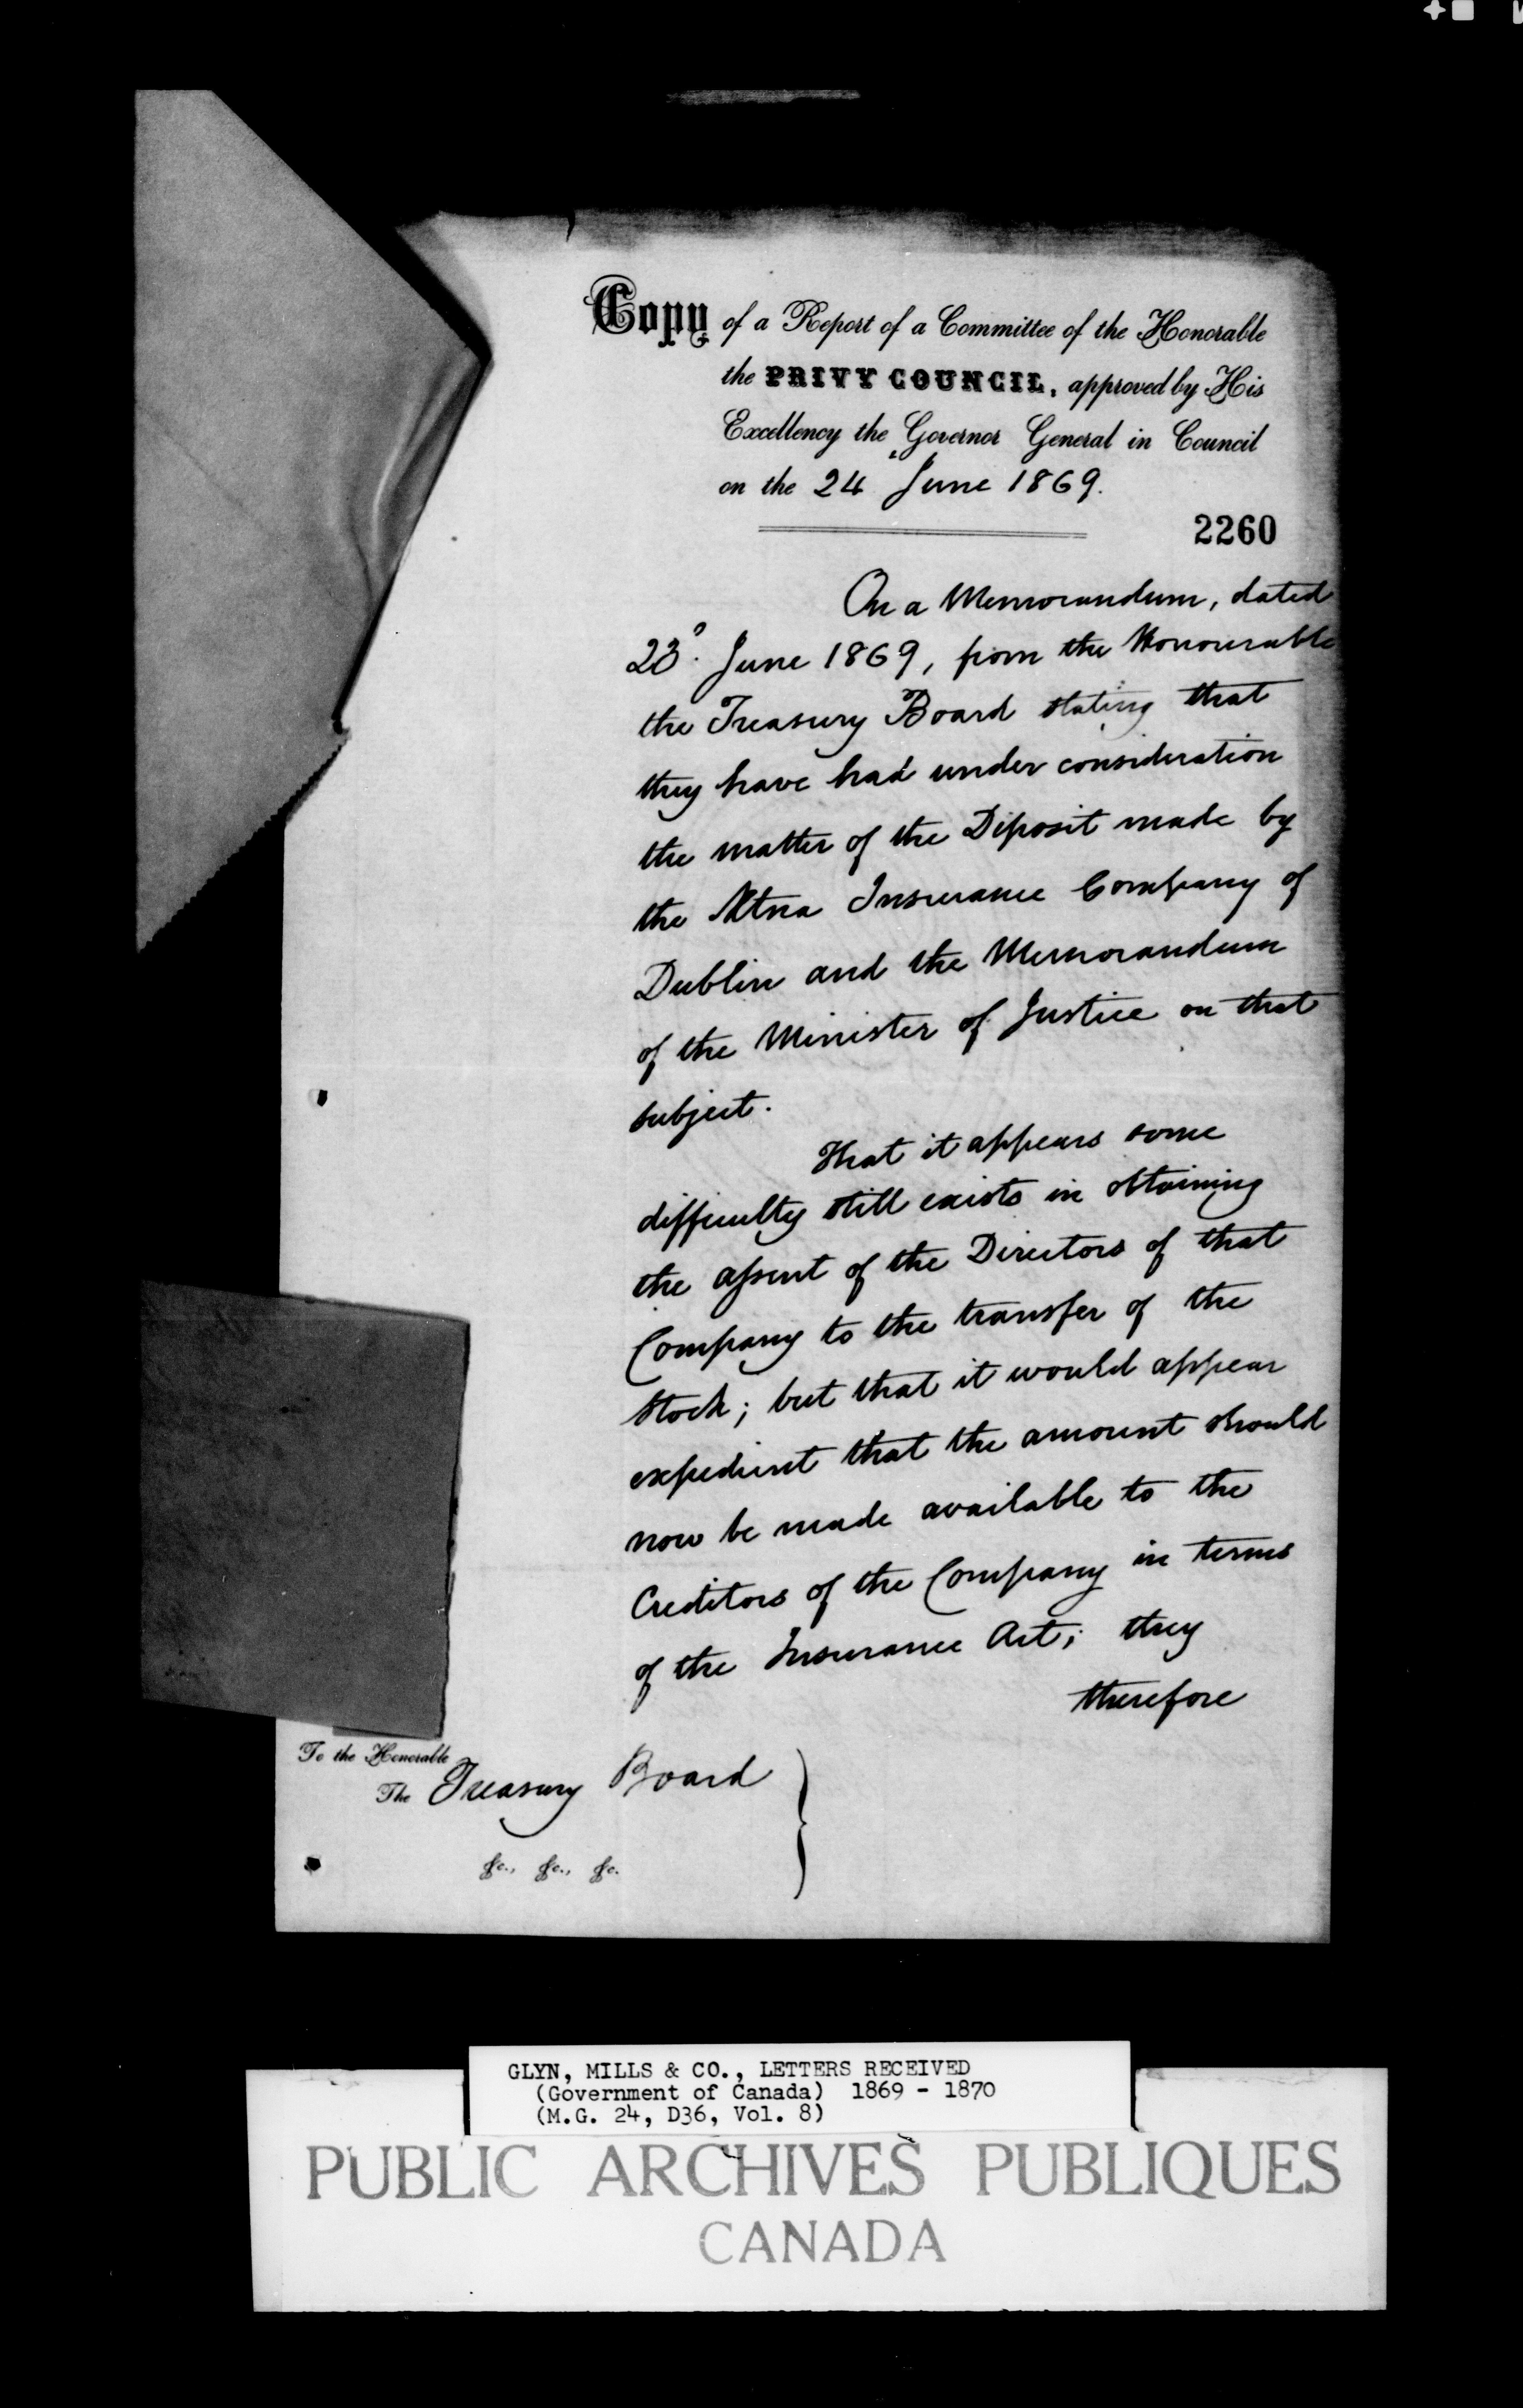 Copy of a Report of a Committee of the Honorable
the PRIVY COUNCIL, approved by His
Excellency the Governor General in Council
on the 24 June 1869.
2260
On a Memorandum, dated
23d. June 1869, from the Honourable
the Treasury Board stating that
they have had under consideration
the matter of the Deposit made by
the Ætna Insurance Company of
Dublin and the Memorandum
of the Minister of Justice on that
subject.
That it appears some
difficulty still exists in obtaining
the assent of the Directors of that
Company to the transfer of the
Stock; but that it would appear
expedient that the amount should
now be made available to the
Creditors of the Company in terms
of the Insurance Act; they
therefore
To the Honorable
The Treasury Board
&c., &c., &c.
GLYN, MILLS & CO., LETTERS RECEIVED
(Government of Canada) 1869 - 1870
(M.G. 24, D36, Vol. 8)
PUBLIC ARCHIVES PUBLIQUES
CANADA